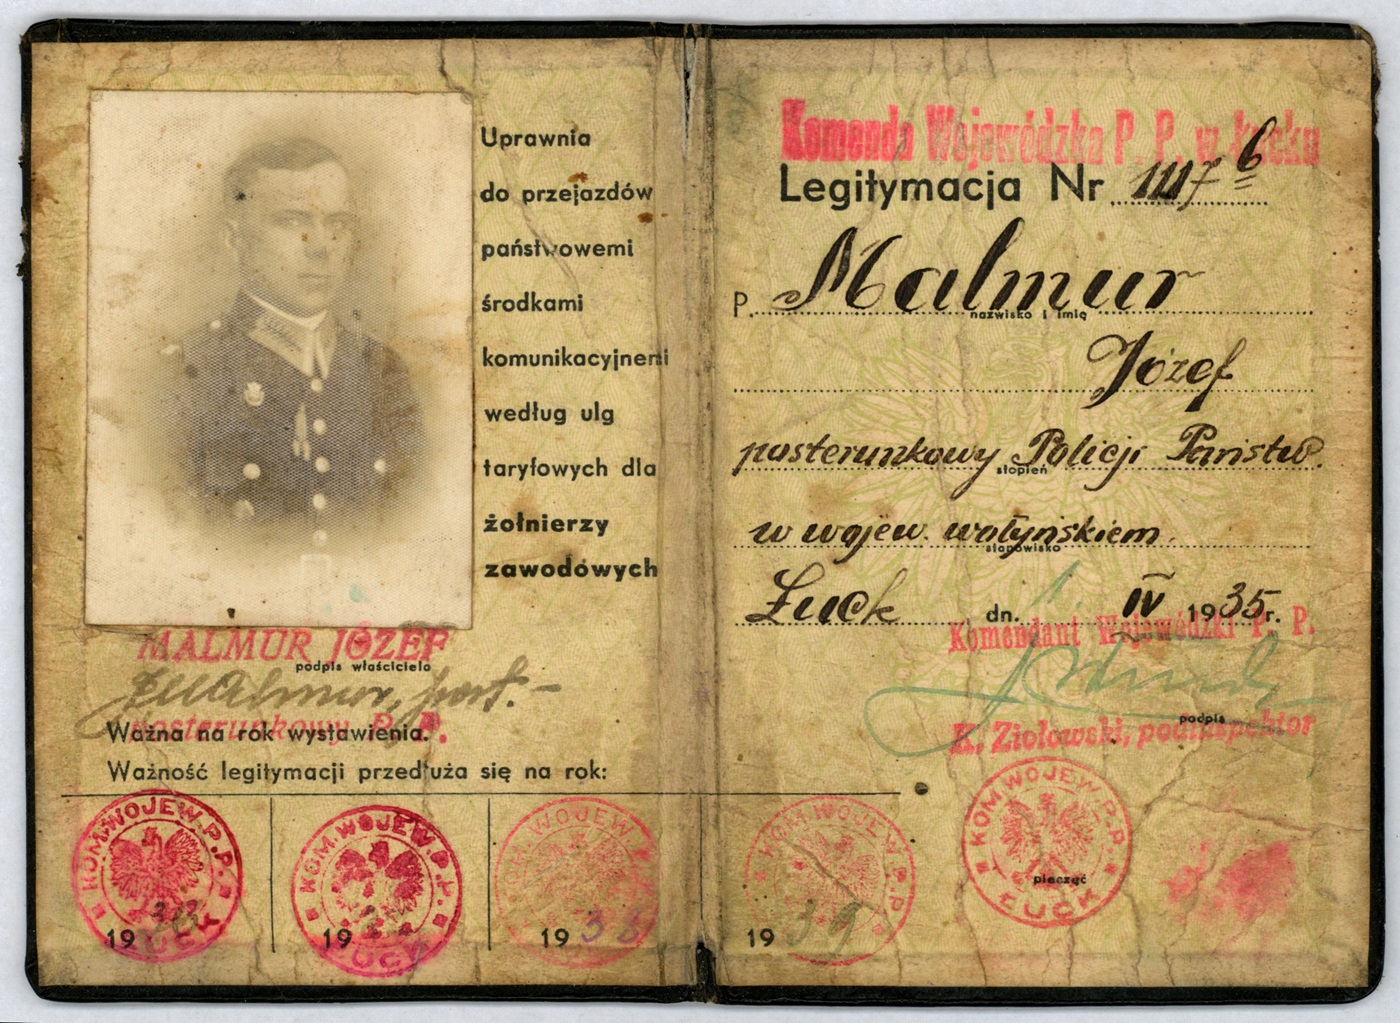 Uprawnia
do przejazdów
państwowemi
środkami
komunikacyjnemi
według ulg
taryfowych dla
żołnierzy
zawodowych
MALMUR JÓZEF
podpis właściciela
JMalmur, post. -
posterunkowy P. P.
Ważna na rok wystawienia.
Ważność legitymacji przedłuża się na rok:
KOM. WOJEW. P. P. ŁUCK
19
KOM. WOJEW. P. P. ŁUCK
19
WOJEW.
19 38
Komenda Wojewódzka P. P. w Łucku
Legitymacja Nr
P. Malmur
nazwisko i imię
Józef
posterunkowy Policji Państw.
stopień
w wojew. wołyńskiem.
stanowisko
Łuck dn. 1. IV 1935 r.
Komendant Wojewódzki P. P.
podpis
K. Ziołowski, podinspektor
KOM. WOJEW. P. P. ŁUCK
pieczęć
KOM. WOJEW. P. P.
19 39